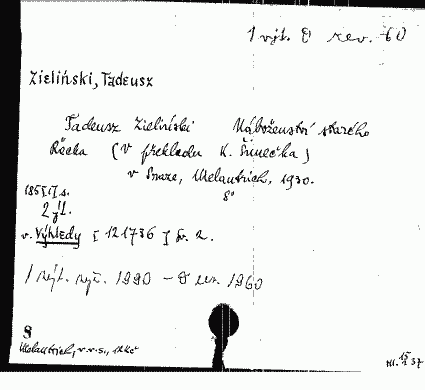 1 výt. θ rev. 60
Zieliński, Tadeusz
Tadeusz Zieliński Náboženství starého
Řecka (V překladu K. Šimečka)
v Praze, Melantrich, 1930.
8°
185[1] s.
2 výt.
v. Výhledy [121736] sv. 2.
1 výt. vyř. 1990 – θ rev. 1960
8
Melantrich, v.v.s., 12Kč